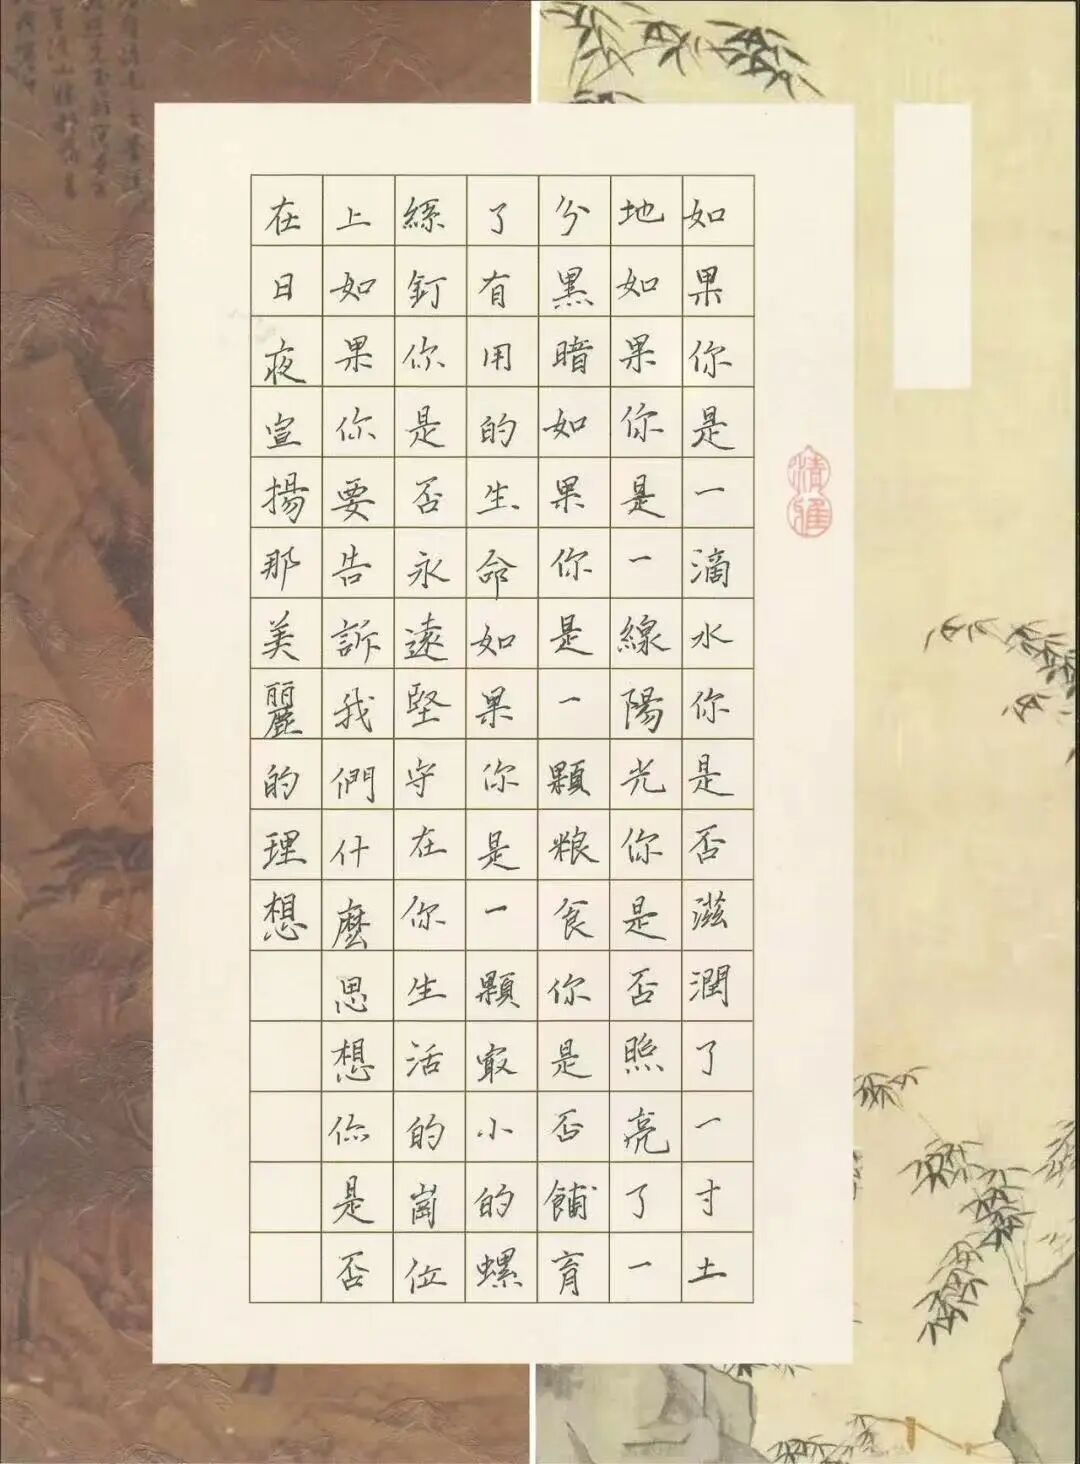 如果你是一滴水你是否滋潤了一寸土
地如果你是一線陽光你是否照亮了一
分黑暗如果你是一顆粮食你是否餔育
了有用的生命如果你是一顆最小的螺
絲釘你是否永遠堅守在你生活的崗位
上如果你要告訴我們什麼思想你是否
在日夜宣揚那美麗的理想
清雅